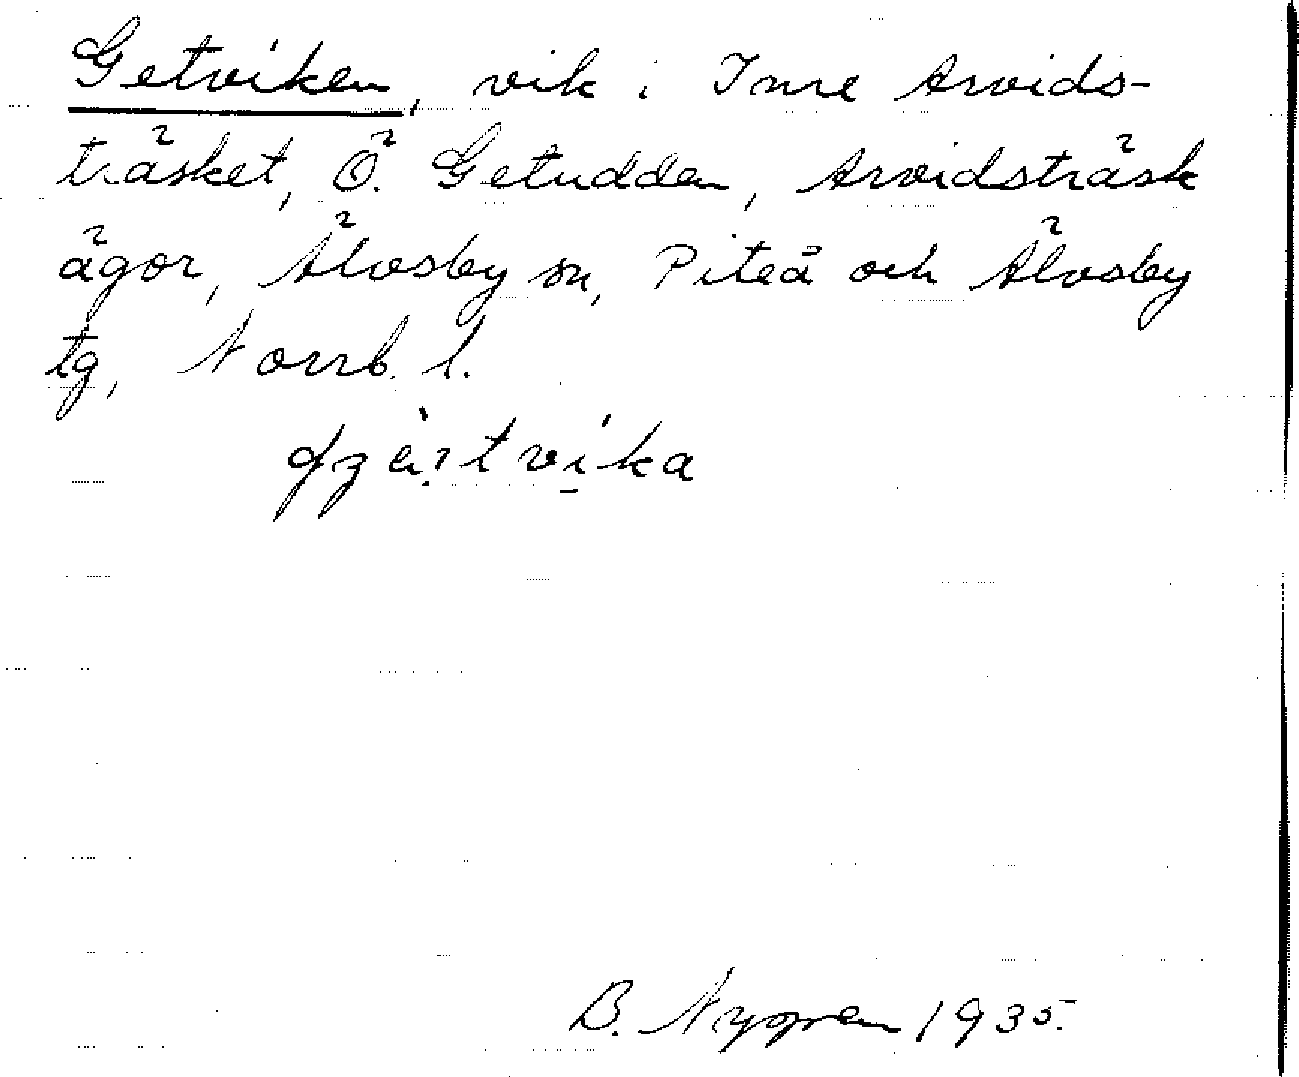 Getviken, vik i Inre Arvids-
träsket, Ö. Getudden, Arvidsträsk
ägor, Älvsby sn, Piteå och Älvsby
tg, Norrb. l.
B. Nygren 1935.